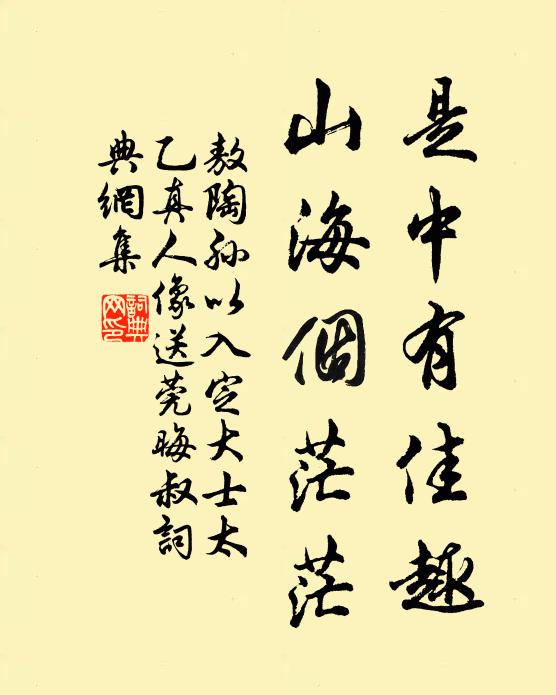 是中有佳趣
山海個茫茫
敖陶孫以入定大士太
乙真人像送莞晦叔詞
典網集
詞典
网印